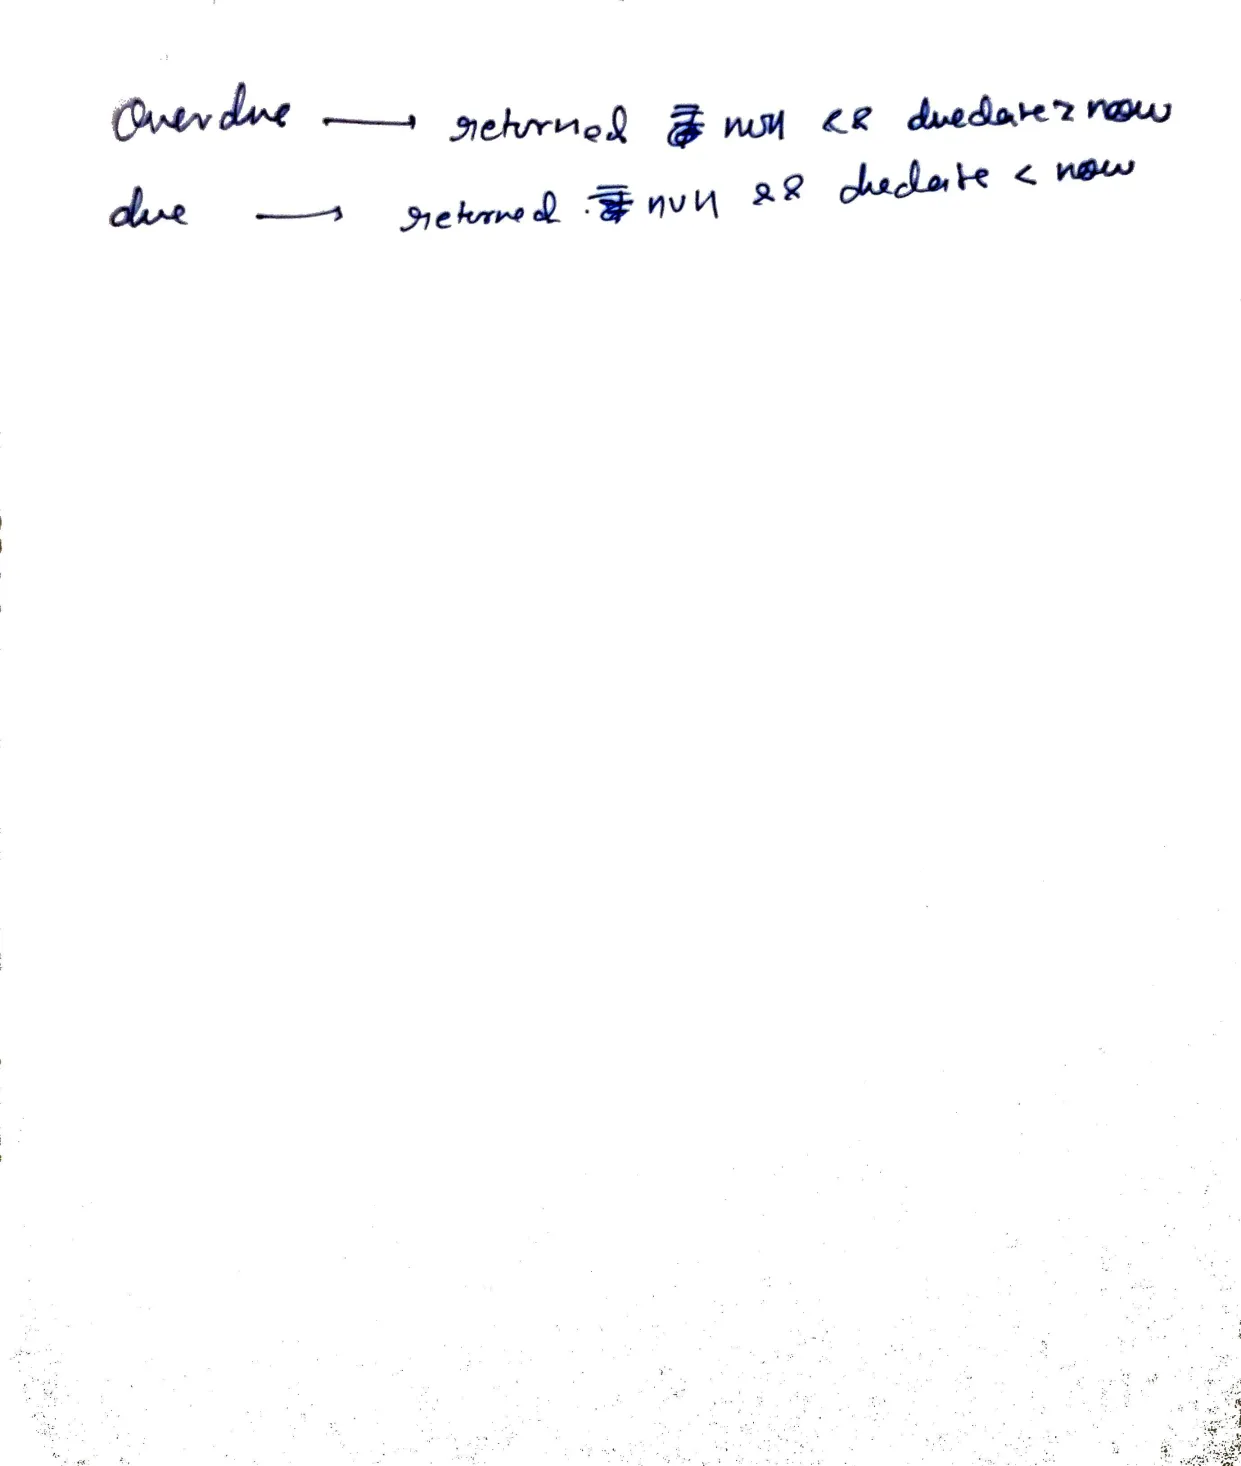 Overdue → returned = null && duedate > now
due → returned = null && duedate < now